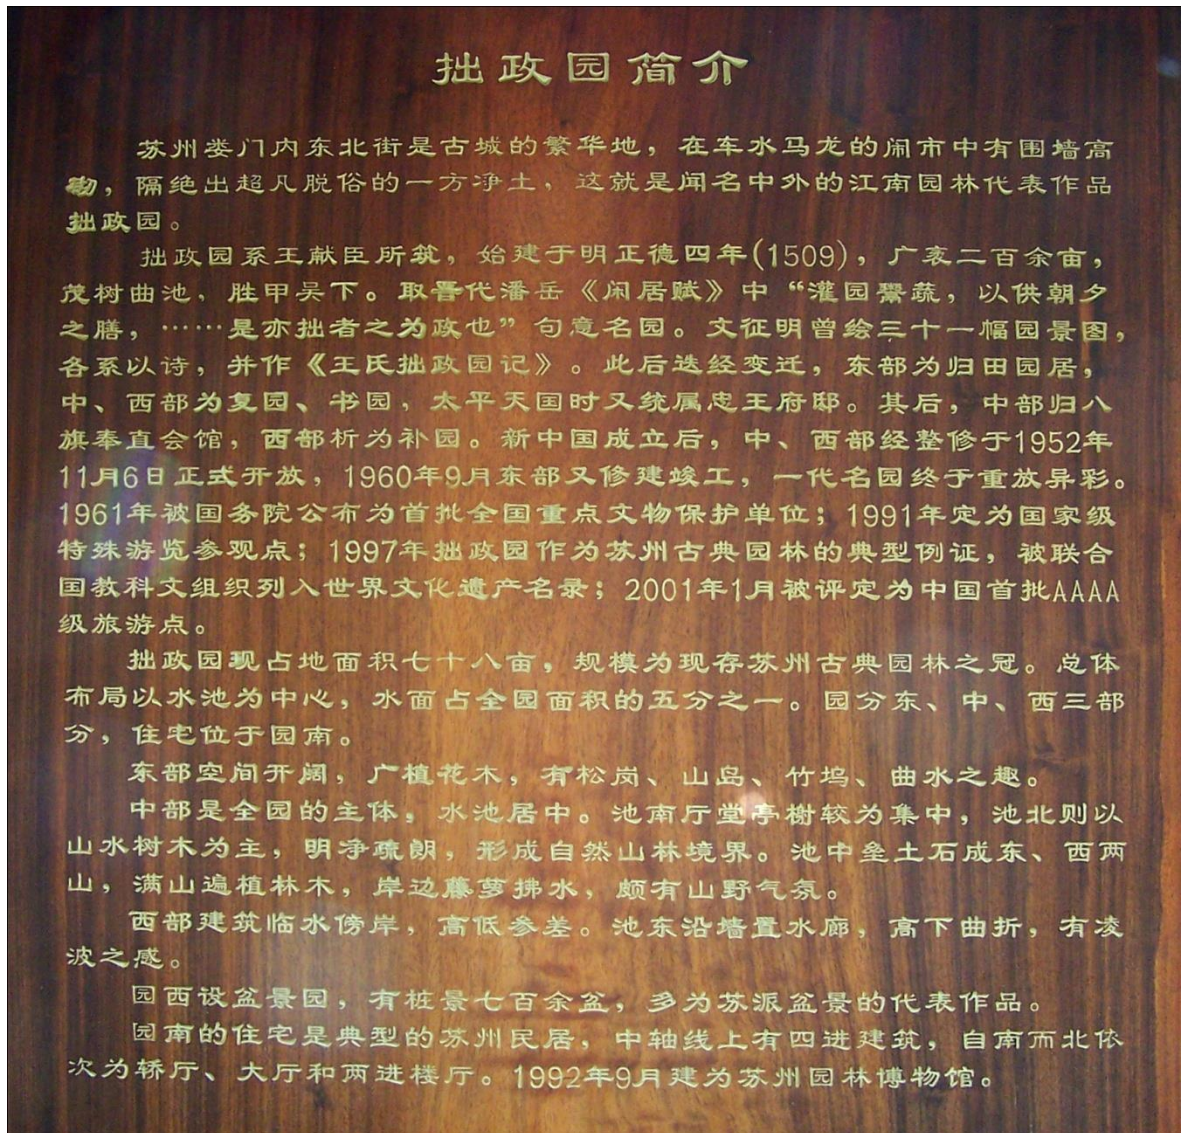 拙政园简介
苏州娄门内东北街是古城的繁华地，在车水马龙的闹市中有围墙高
砌，隔绝出超凡脱俗的一方净土，这就是闻名中外的江南园林代表作品
拙政园。
拙政园系王献臣所筑，始建于明正德四年(1509)，广袤二百余亩，
茂树曲池，胜甲吴下。取晋代潘岳《闲居赋》中“灌园鬻蔬，以供朝夕
之膳，……是亦拙者之为政也”句意名园。文征明曾绘三十一幅园景图，
各系以诗，并作《王氏拙政园记》。此后迭经变迁，东部为归田园居，
中、西部为复园、书园，太平天国时又统属忠王府邸。其后，中部归八
旗奉直会馆，西部析为补园。新中国成立后，中、西部经整修于1952年
11月6日正式开放，1960年9月东部又修建竣工，一代名园终于重放异彩。
1961年被国务院公布为首批全国重点文物保护单位；1991年定为国家级
特殊游览参观点；1997年拙政园作为苏州古典园林的典型例证，被联合
国教科文组织列入世界文化遗产名录；2001年1月被评定为中国首批AAAA
级旅游点。
拙政园现占地面积七十八亩，规模为现存苏州古典园林之冠。总体
布局以水池为中心，水面占全园面积的五分之一。园分东、中、西三部
分，住宅位于园南。
东部空间开阔，广植花木，有松岗、山岛、竹坞、曲水之趣。
中部是全园的主体，水池居中。池南厅堂亭榭较为集中，池北则以
山水树木为主，明净疏朗，形成自然山林境界。池中垒土石成东、西两
山，满山遍植林木，岸边藤萝拂水，颇有山野气氛。
西部建筑临水傍岸，高低参差。池东沿墙置水廊，高下曲折，有凌
波之感。
园西设盆景园，有桩景七百余盆，多为苏派盆景的代表作品。
园南的住宅是典型的苏州民居，中轴线上有四进建筑，自南而北依
次为轿厅、大厅和两进楼厅。1992年9月建为苏州园林博物馆。